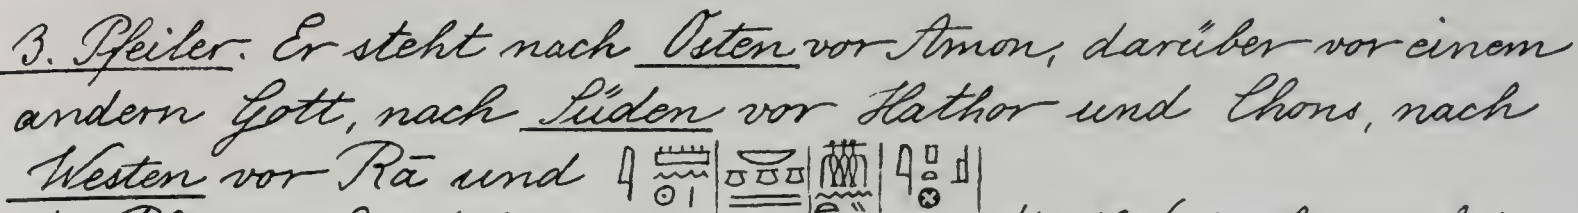 3. Pfeiler. Er steht nach Osten vor Amon, darüber vor einem
andern Gott, nach Süden vor Hathor und Chons, nach
Westen vor Rā und